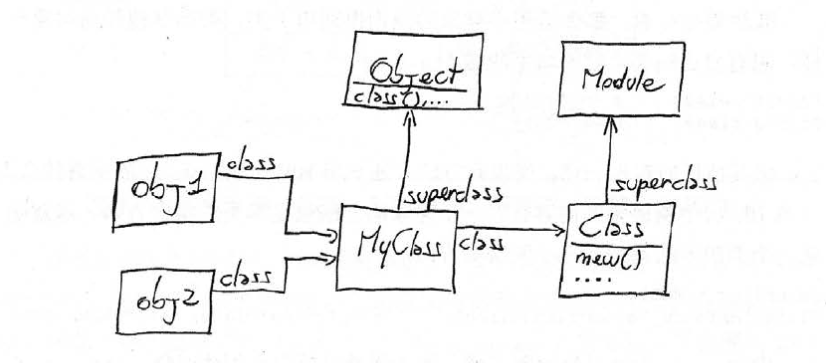 Object
class(),...
Module
obj1
class
superclass
superclass
MyClass
class
Class
new()
....
obj2
class